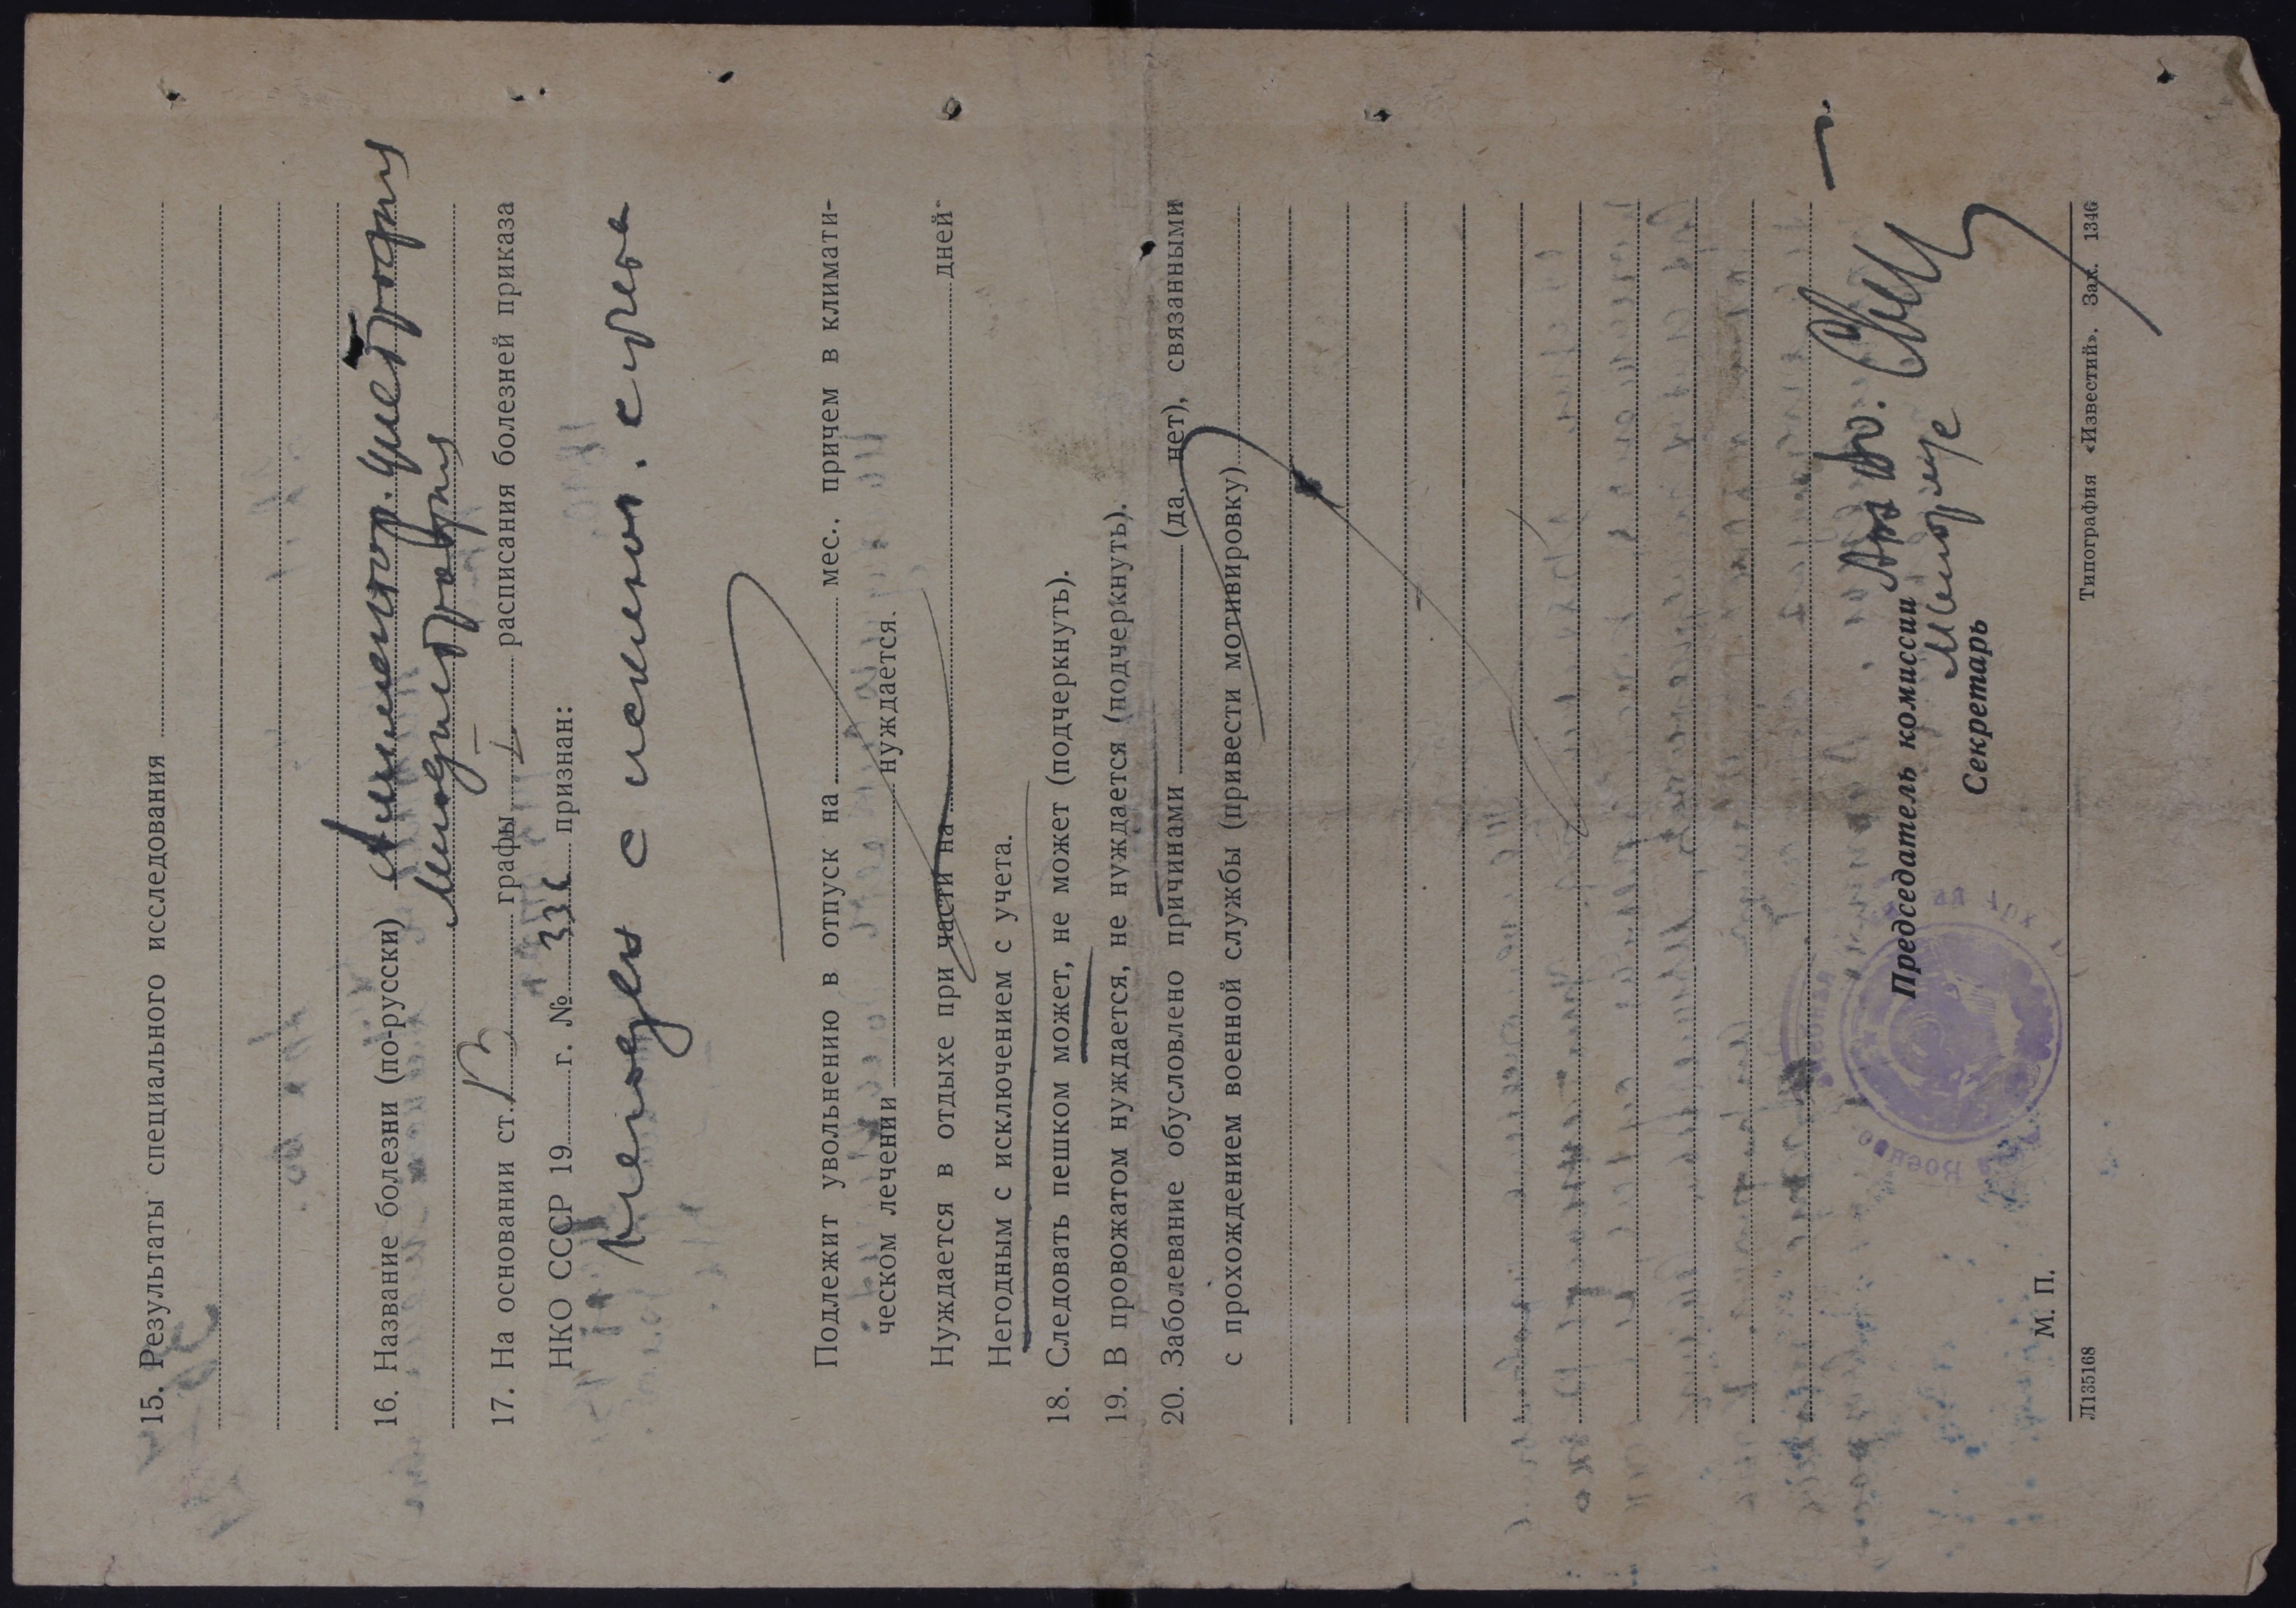 15. Результаты специального исследования
16. Название болезни (по-русски) Алиментар. дистрофия
миодистрофия
17. На основании ст. графы I расписания болезней приказа
НКО СССР 19 г. № 336 признан:
Негоден с исключ. с учета
Подлежит увольнению в отпуск на мес., причем в климати-
ческом лечении нуждается.
Нуждается в отдыхе при части на дней
Негодным с исключением с учета.
18. Следовать пешком может, не может (подчеркнуть).
19. В провожатом нуждается, не нуждается (подчеркнуть).
20. Заболевание обусловлено причинами (да, нет), связанными
с прохождением военной службы (привести мотивировку)
Председатель комиссии
Секретарь
М. П.
Л135168 Типография «Известий». Зак. 1346